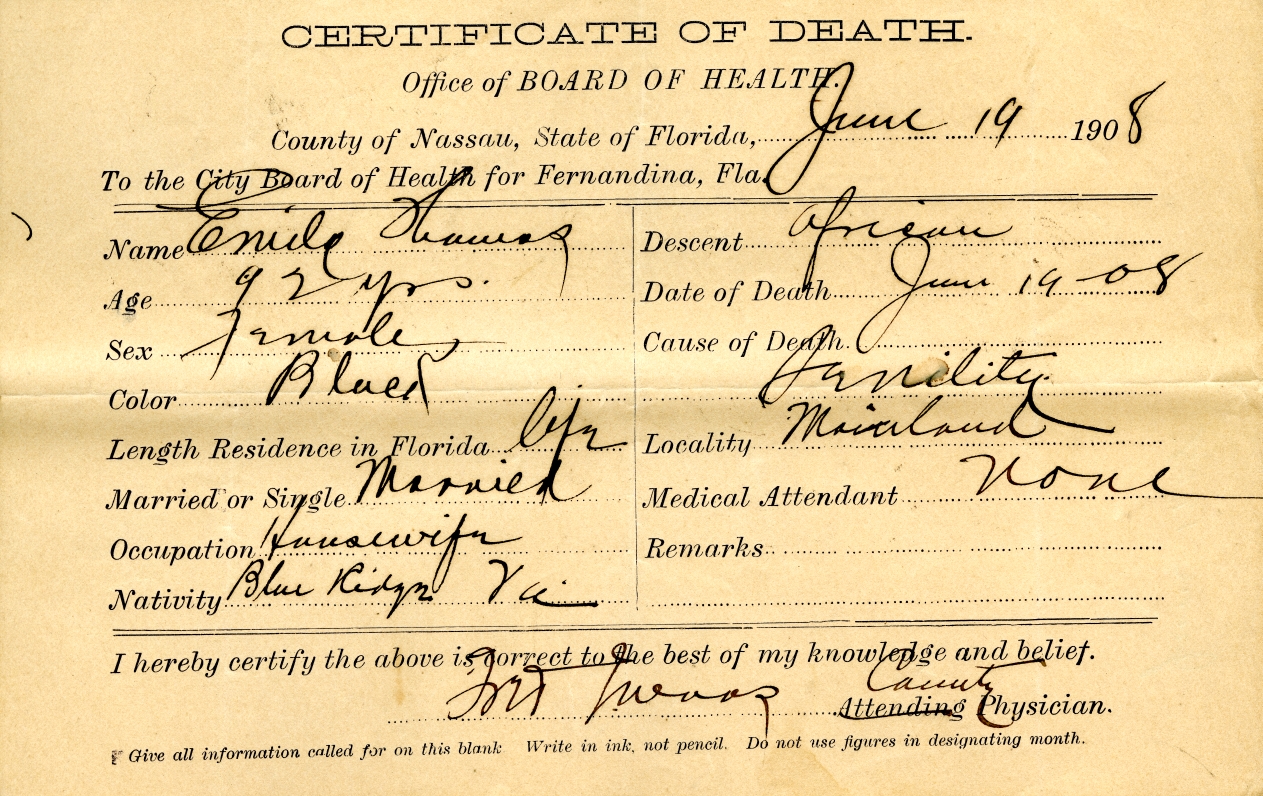 CERTIFICATE OF DEATH.
Office of BOARD OF HEALTH.
County of Nassau, State of Florida, June 19 1908
To the City Board of Health for Fernandina, Fla.
Name Thomas
Age 92 yrs.
Sex Female
Color Black
Length Residence in Florida life
Married or Single Married
Occupation Housewife
Nativity Blue Ridge Va
Descent African
Date of Death June 19-08
Cause of Death
Senility
Locality Mainland
Medical Attendant None
Remarks
I hereby certify the above is correct to the best of my knowledge and belief.
County
Attending Physician.
Give all information called for on this blank Write in ink, not pencil. Do not use figures in designating month.